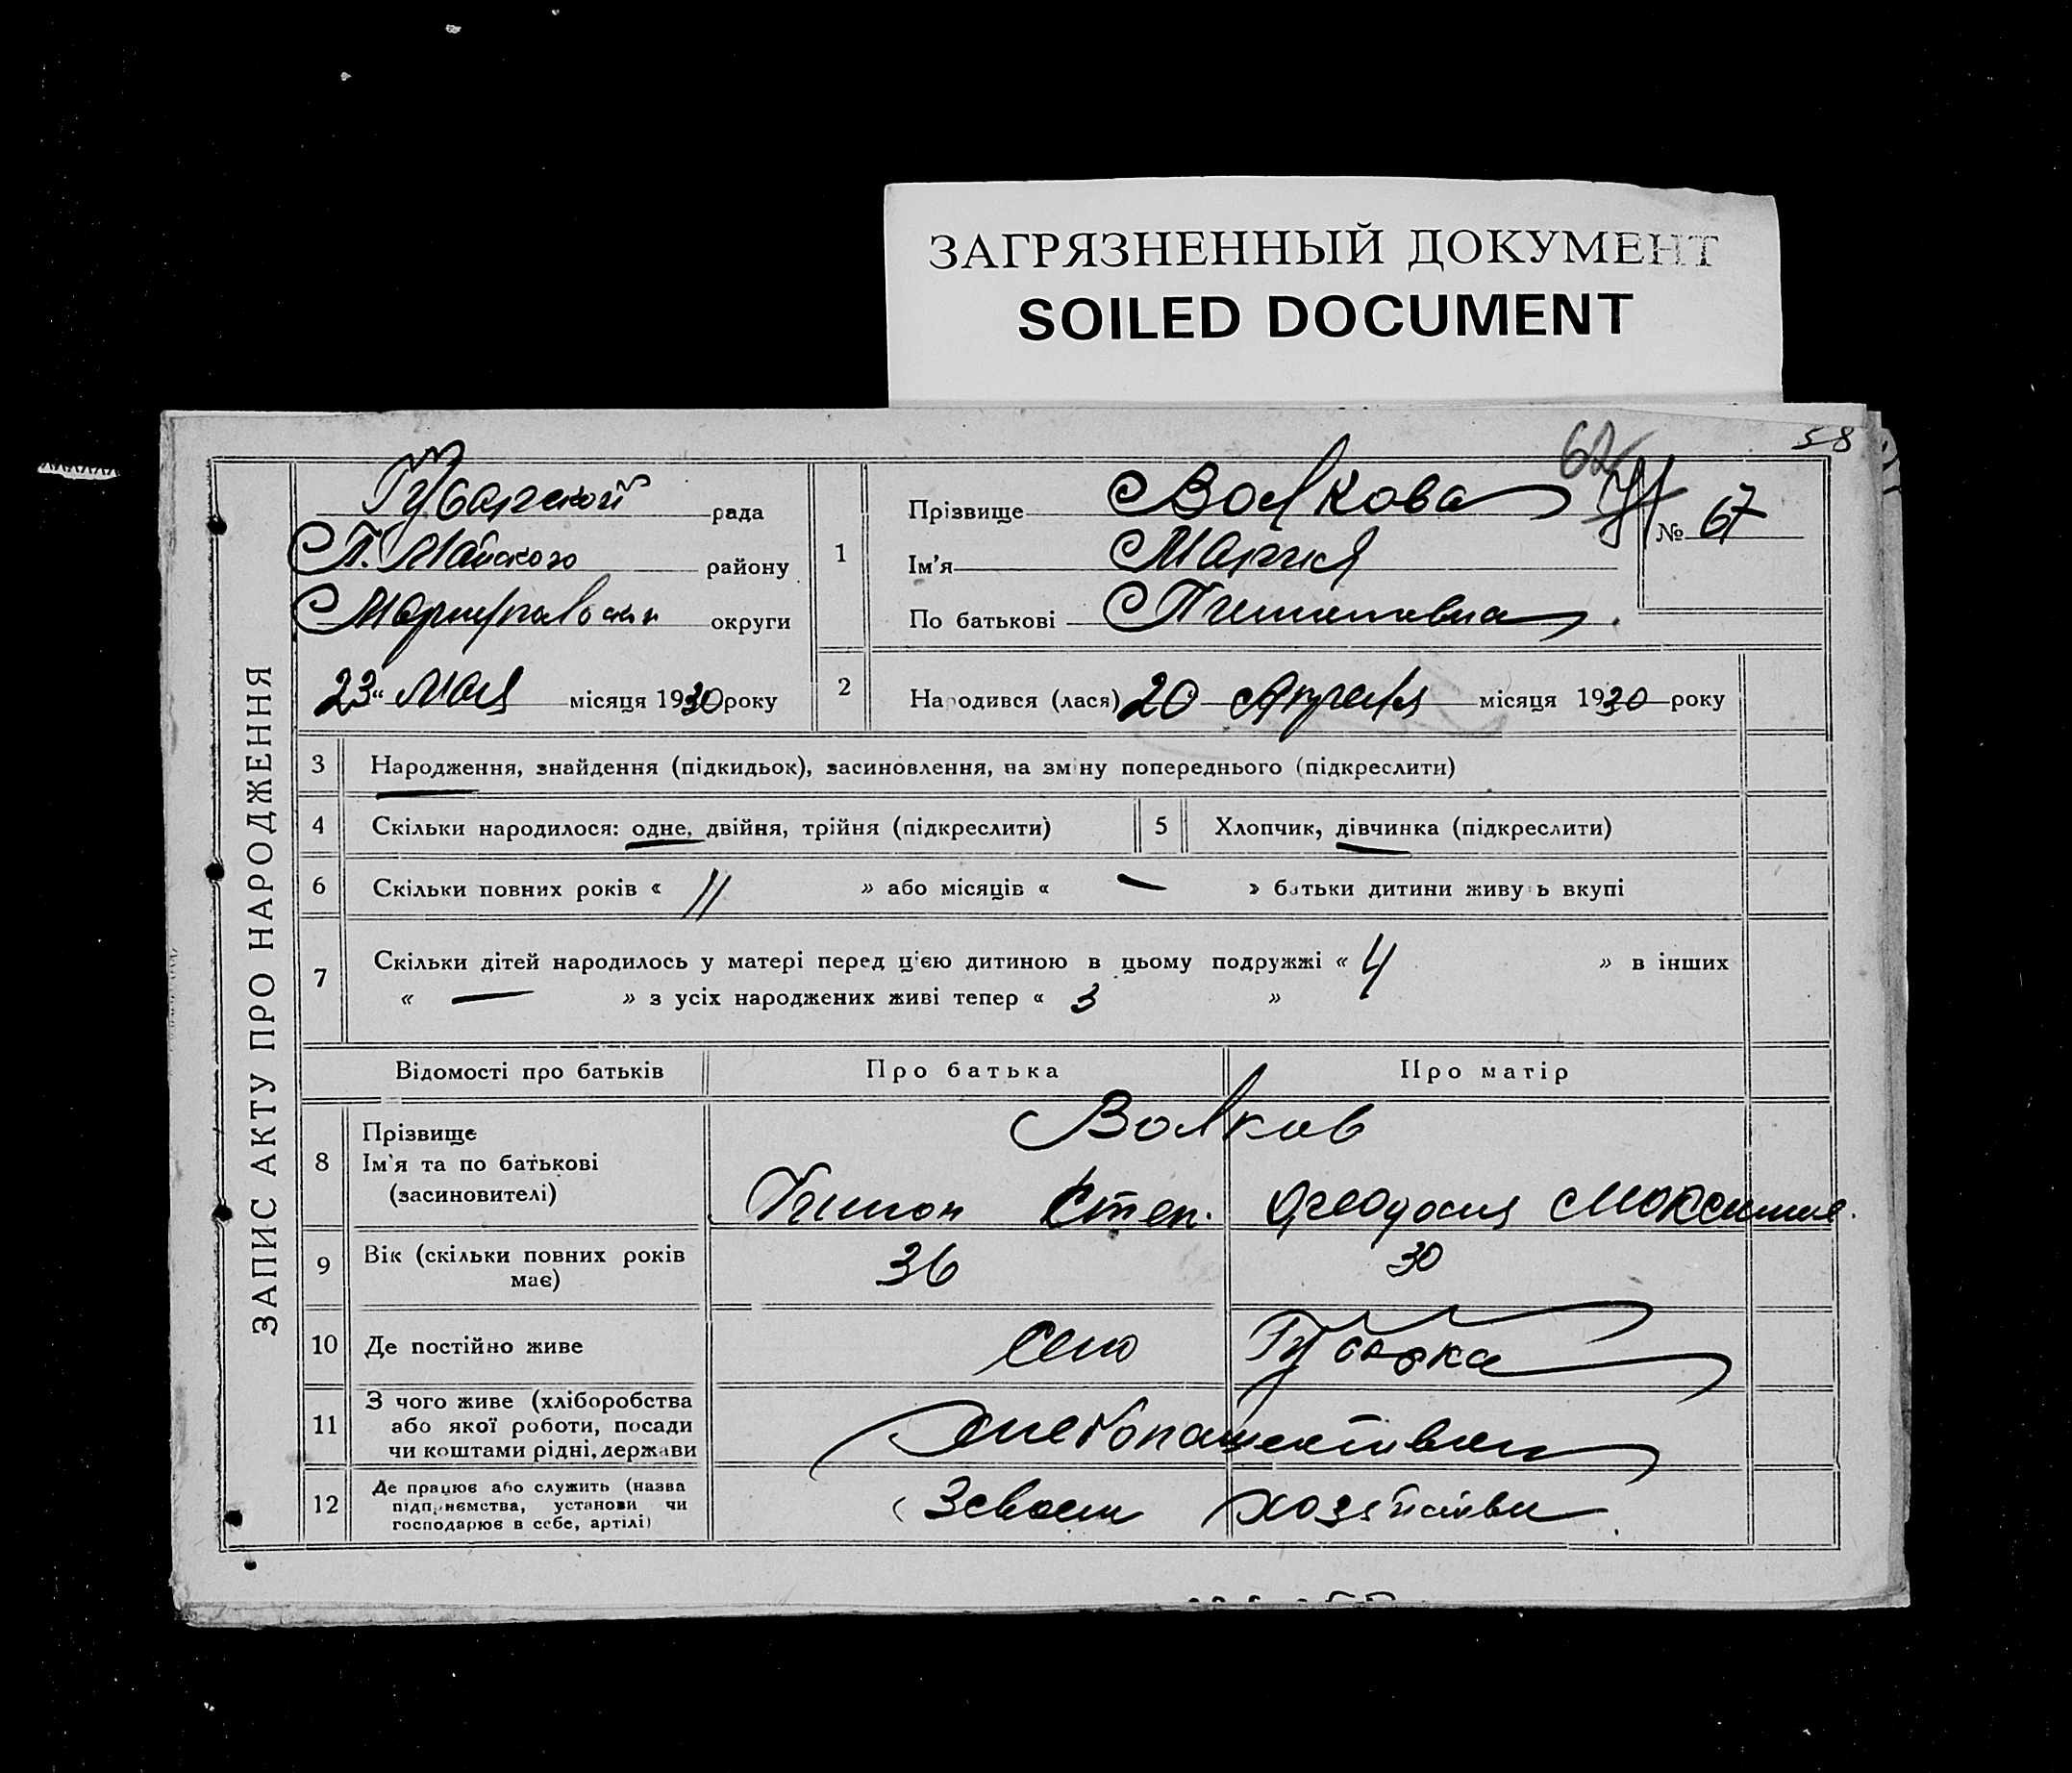 ЗАГРЯЗНЕННЫЙ ДОКУМЕНТ
SOILED DOCUMENT
58
62
ЗАПИС АКТУ ПРО НАРОДЖЕННЯ
рада
П. Майского району
округи
23 " Мая місяця 1930 року
1
Прізвище Волкова
№ 67
Ім'я Мария
По батькові
2 Народився (лася) 20 Апреля місяця 1930 року
3 Народження, знайдення (підкидьок), засиновлення, на зміну попереднього (підкреслити)
4 Скільки народилося: одне, двійня, трійня (підкреслити) 5 Хлопчик, дівчинка (підкреслити)
6 Скільки повних років « 11 » або місяців « — » батьки дитини живуть вкупі
7 Скільки дітей народилось у матері перед цією дитиною в цьому подружжі « 4 » в інших
« — » з усіх народжених живі тепер « 3 »
Відомості про батьків Про батька Про матір
8 Прізвище
Ім'я та по батькові
(засиновителі)
Волков
Степ. Феодосия Максимов.
9 Вік (скільки повних років
має)
36 30
10 Де постійно живе
село
11 З чого живе (хліборобства
або якої роботи, посади
чи коштами рідні, держави
12 Де працює або служить (назва
підприємства, установи чи
господарює в себе, артілі)